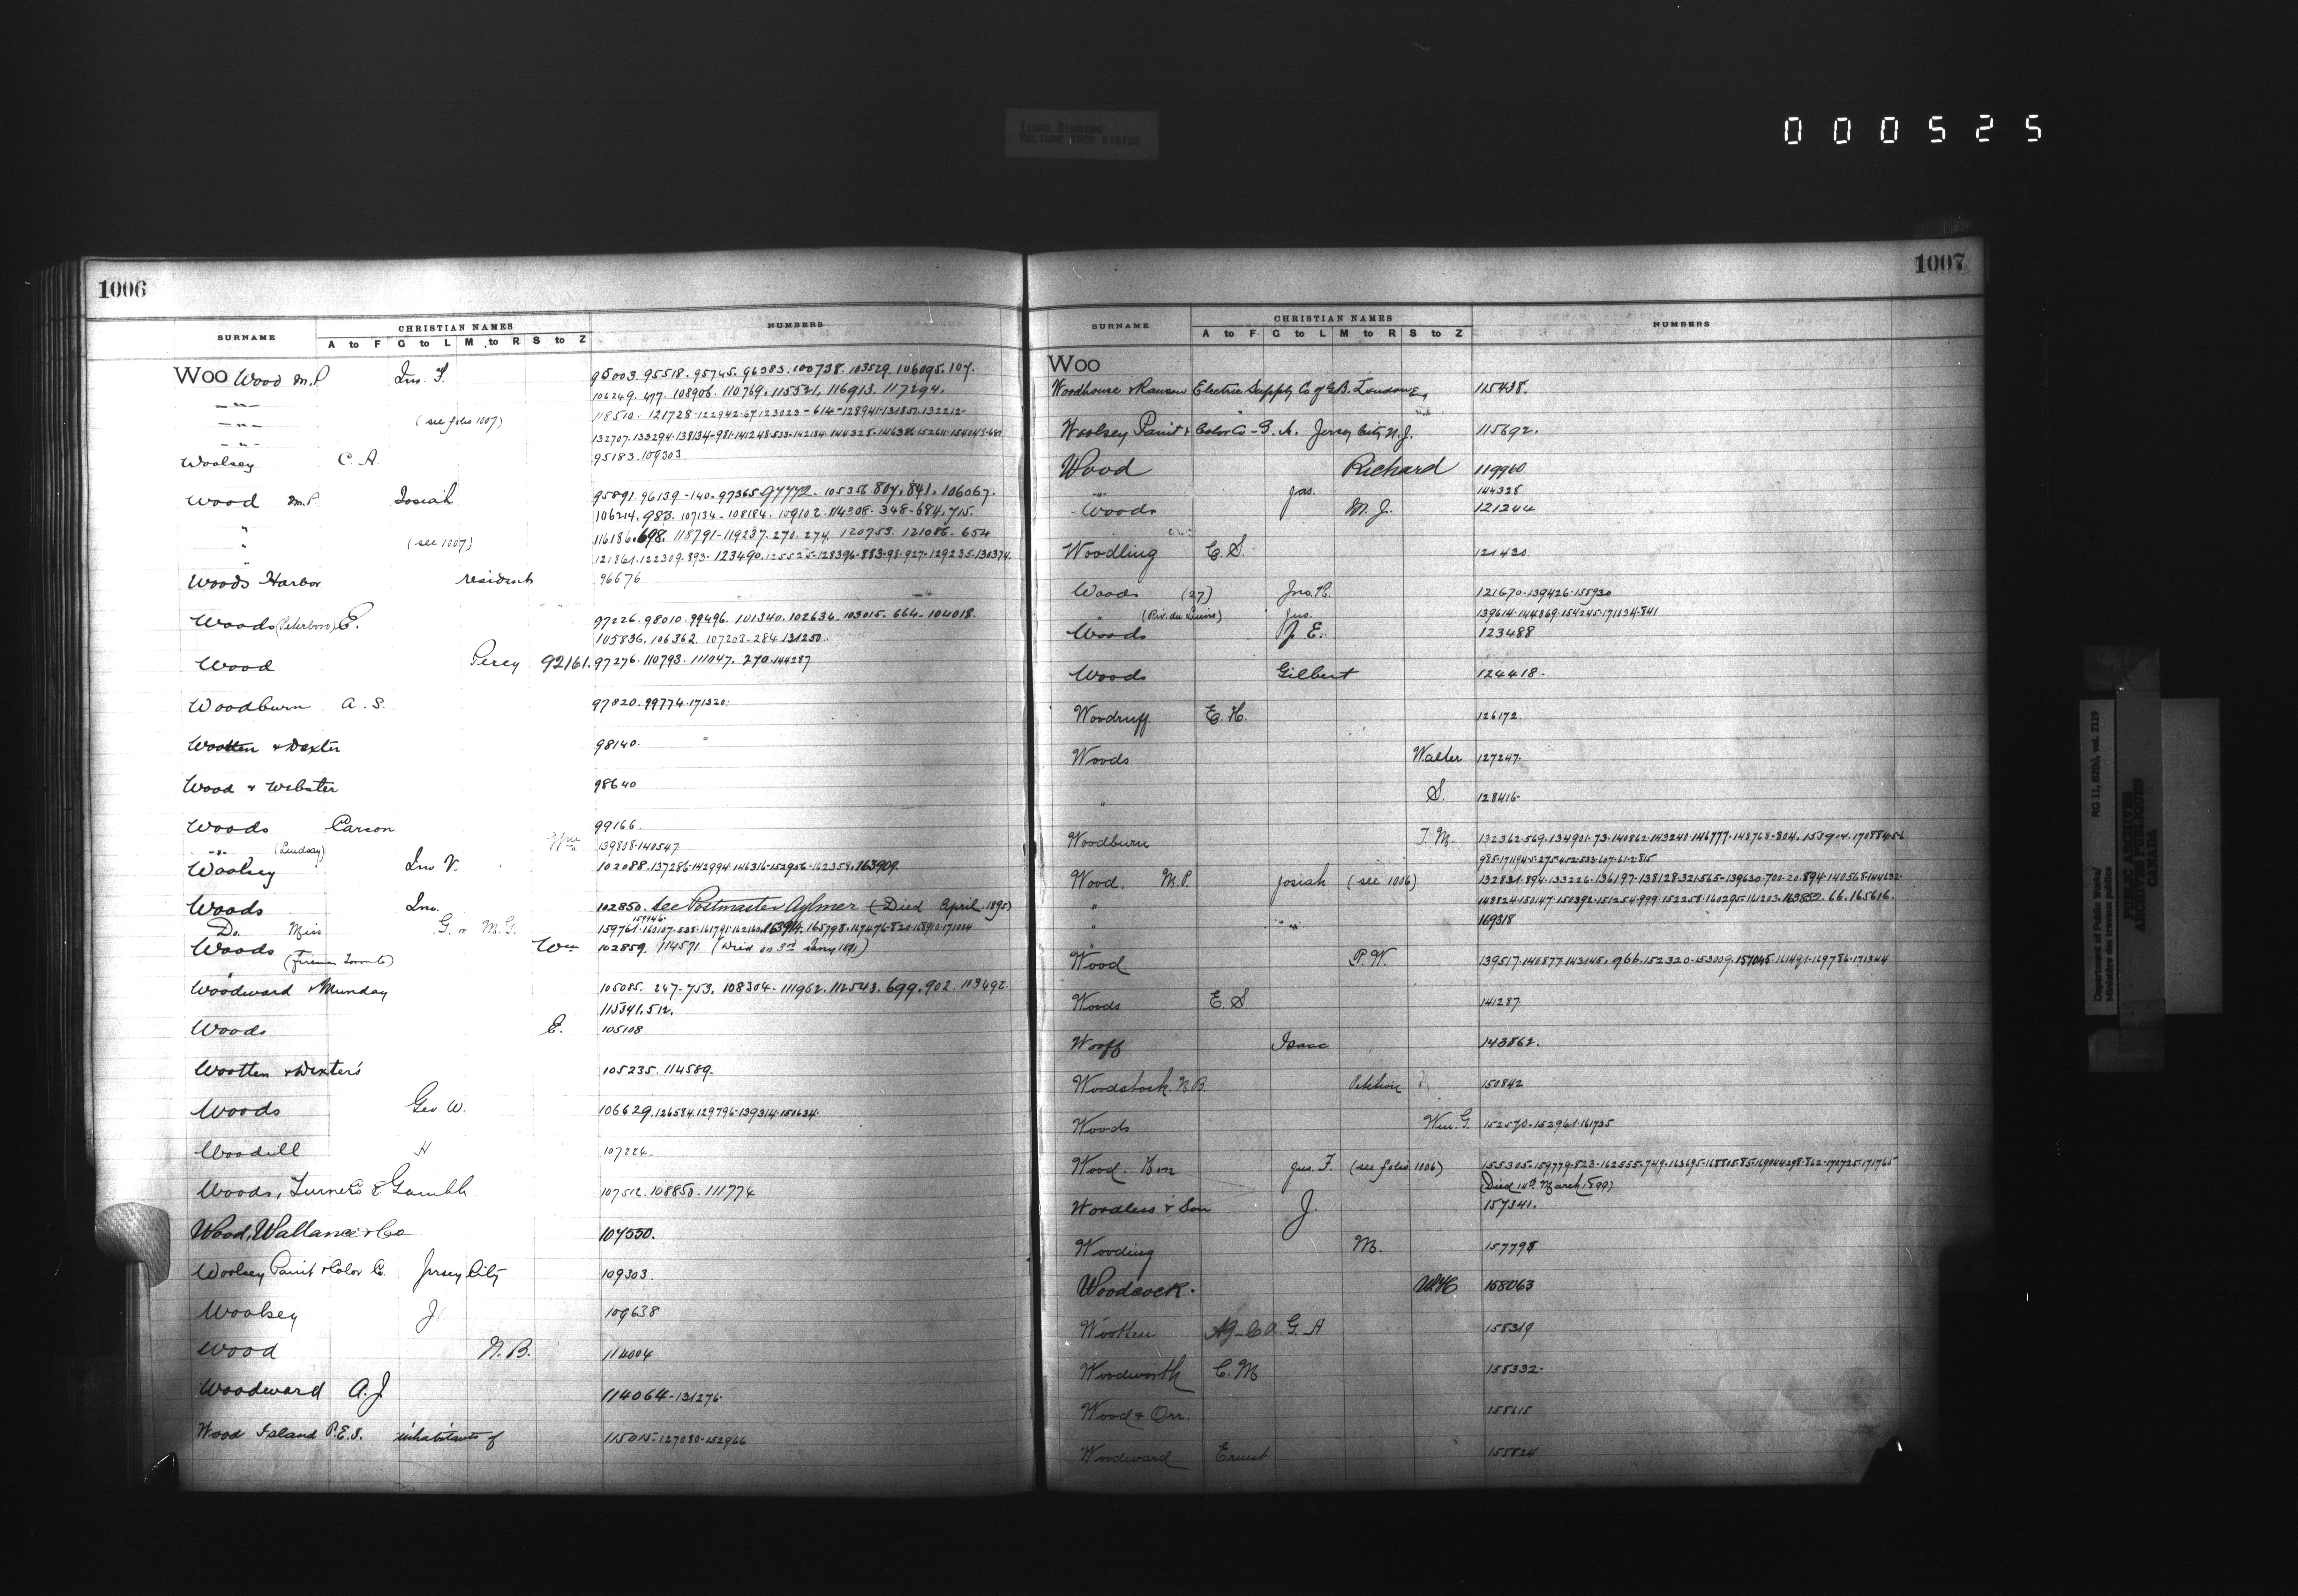 TIGHT BINDING
RELIURE TROP RIGIDE
000525
1006
SURNAME CHRISTIAN NAMES NUMBERS
A to F G to L M to R S to Z
WOO Wood M.P. Jno. F. 95003. 95518. 95745. 96383. 100738. 103529. 106095. 107.
106249. 477. 108906. 110769. 115521. 116913. 117294.
(see folio 1007) 118510. 121728-122942-67-123023-614-128941-131857-132212-
132707-133294-138134-981-141248-533-142134-144328-146386-152611-154043-681
Woolsey C. A. 95183. 109303
Wood M.P. Josiah 95891. 96139-140. 97365. 97772. 105356. 807. 841. 106067.
106214. 983. 107134-108184. 109102. 114308. 348-684. 715.
" (see 1007) 116186. 698. 118791-119237. 270. 274. 120753. 121086. 654
" 121861. 122309. 893. 123490. 125525-128396-883-98-927-129235-130374
Woods Harbor residents 96676
Woods (Peterboro) E. 97226. 98010. 99496. 101340. 102634. 103015. 664-104018.
105836. 106362. 107203-284. 131250.
Wood Percy 92161. 97276. 110793. 111047. 270. 144287
Woodburn A. S. 97820. 99774. 171320.
Wootten & Dexter 98140.
Wood & Webster 98640
Woods Carson 99166.
-"- (Lindsay) Wm 139808-140547
Woolsey Jno V. 102088. 137286-142994-146316-152956-162358. 163909.
Woods Jno. 102850. See Postmaster Aylmer (Died April 1895)
Do. Miss G. or M. G. 159761-160107-538-161791-162160. 163914. 165798. 167476-820-168910-171004
159946.
Woods Wm 102859. 114571 (Died on 3rd Jany 1891)
(fireman Toronto)
Woodward & Munday 105085. 247-753. 108304. 111962. 112543. 699. 902. 113492.
115341. 512.
Woods E. 105108
Wootten & Dexter's 105235. 114589.
Woods Geo. W. 106629. 126584. 129796-139314-150634.
Woodill H 107224.
Woods, Turners & Gamble 107512. 108850. 111774
Wood, Wallance & Co 107550.
Woolsey Paint & Color Co. Jersey City 109303.
Woolsey J 109638
Wood N. B. 114004
Woodward A. J 114064-131276.
Wood Island P.E.I. inhabitants of 115015-127080-152966
1007
SURNAME CHRISTIAN NAMES NUMBERS
A to F G to L M to R S to Z
WOO
Woodhouse & Rawson Electric Supply Co of G.B. London Eng 115438.
Woolsey Paint & Color Co - G. A. Jersey City N. J. 115692.
Wood Richard 119960.
-"- Jas. 144328
Woods M. J. 121244
Woodling E. S. 121430.
Woods (27) Jno. H. 121670-139426-155930
" (Riv. du Lievre) Jas. 139614-144869-154245-171034-841
Woods J. E. 123488
Woods Gilbert 124418.
Woodruff E. H. 126172.
Woods Walter 127247.
" S. 128416.
Woodburn T. M. 132362-569-134901-73-140862-143240-146777-148768-804. 153914. 170884-5-6
985-171194-5-275-452-533-607-61-2-815
Wood. M.P. Josiah (see 1006) 132831-894-133226-136197-138128-321-565-139630-700-20-894-140568-144632-
" 148824-150147-150392-151254-999-152258-160295-161203. 163852. 66. 165616.
" -"- 169318
Wood P. W. 139517-140877-143145. 966. 152320-153009. 157045-161491-169786-171344
Woods E. S. 141287.
Woolf Isaac 143862.
Woodstock N.B. Petition 150842
Woods Wm. G. 152570-152961-161735
Wood. Hon Jno. F. (see folio 1006) 155305-159779-823-162555-749-163695-168815-85-169044-298-862-170725-171765
(Died 14th March 1899)
Woodless & Son J. 157341.
Wooding M. 157798
Woodcock. W H 158063
Wootten Ag-C A. G. A 158319
Woodworth C. M 158332.
Wood & Orr. 158615
Woodward Ernest 158824
Department of Public Works/ RG 11, B2(b), vol. 2119
Ministère des travaux publics
PUBLIC ARCHIVES
ARCHIVES PUBLIQUES
CANADA